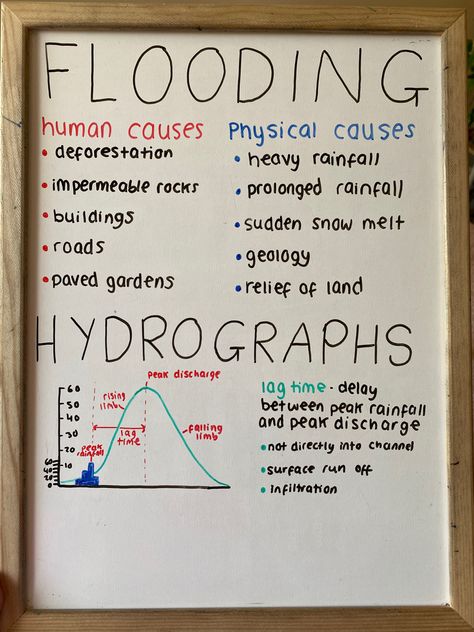 FLOODING
human causes
• deforestation
• impermeable rocks
• buildings
• roads
• paved gardens
Physical causes
• heavy rainfall
• prolonged rainfall
• sudden snow melt
• geology
• relief of land
HYDROGRAPHS
peak discharge
rising limb
lag time
peak rainfall
falling limb
60
50
40
30
20
10
lag time - delay
between peak rainfall
and peak discharge
• not directly into channel
• surface run off
• infiltration